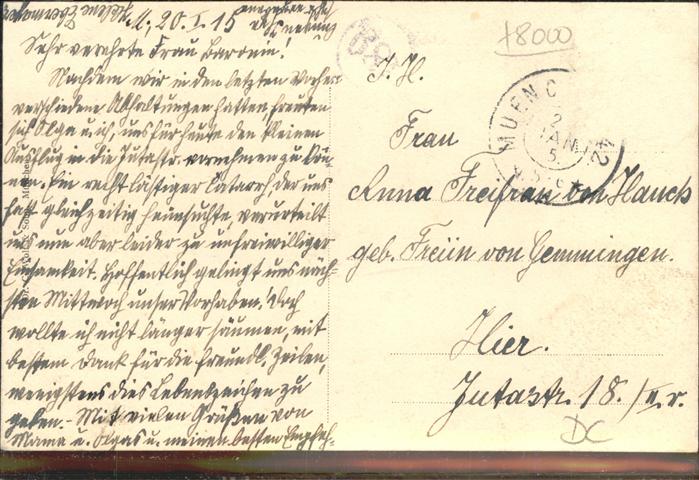 M., 20. I. 15
Sehr verehrte Frau Baronin!
Nachdem wir in den letzten Wochen
verschiedene Abhaltungen hatten, freuten
sich Olga u. ich, uns für heute den kleinen
Ausflug in die Jutastr. vornehmen zu kön-
nen. Ein recht lästiger Catarrh, der uns
fast gleichzeitig heimsuchte, verurteilt
uns nun aber leider zu unfreiwilliger
Einsamkeit. Hoffentlich gelingt uns näch-
sten Mittwoch unser Vorhaben! Doch
wollte ich nicht länger säumen, mit
bestem Dank für die freundl. Zeilen,
wenigstens dies Lebenszeichen zu
geben. - Mit vielen Grüßen von
Mama u. Olgas u. meinen besten Empfeh-
I. H.
Frau
Anna Freifrau von Hauch
geb. Freiin von Gemmingen.
Hier.
Jutastr. 18./II. r.
MUENC
18000
DC